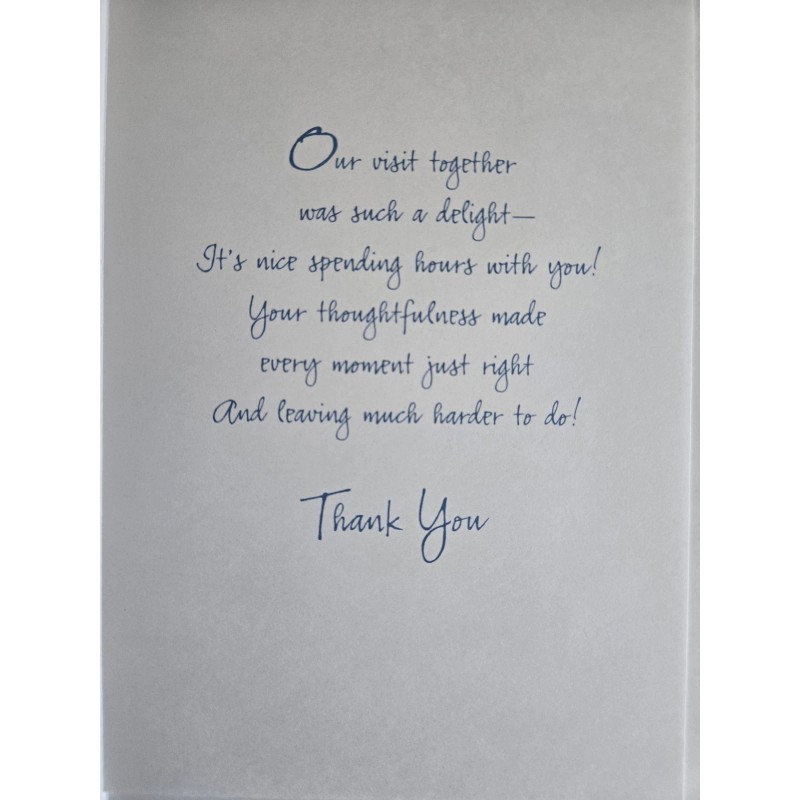 Our visit together
was such a delight—
It's nice spending hours with you!
Your thoughtfulness made
every moment just right
And leaving much harder to do!
Thank You